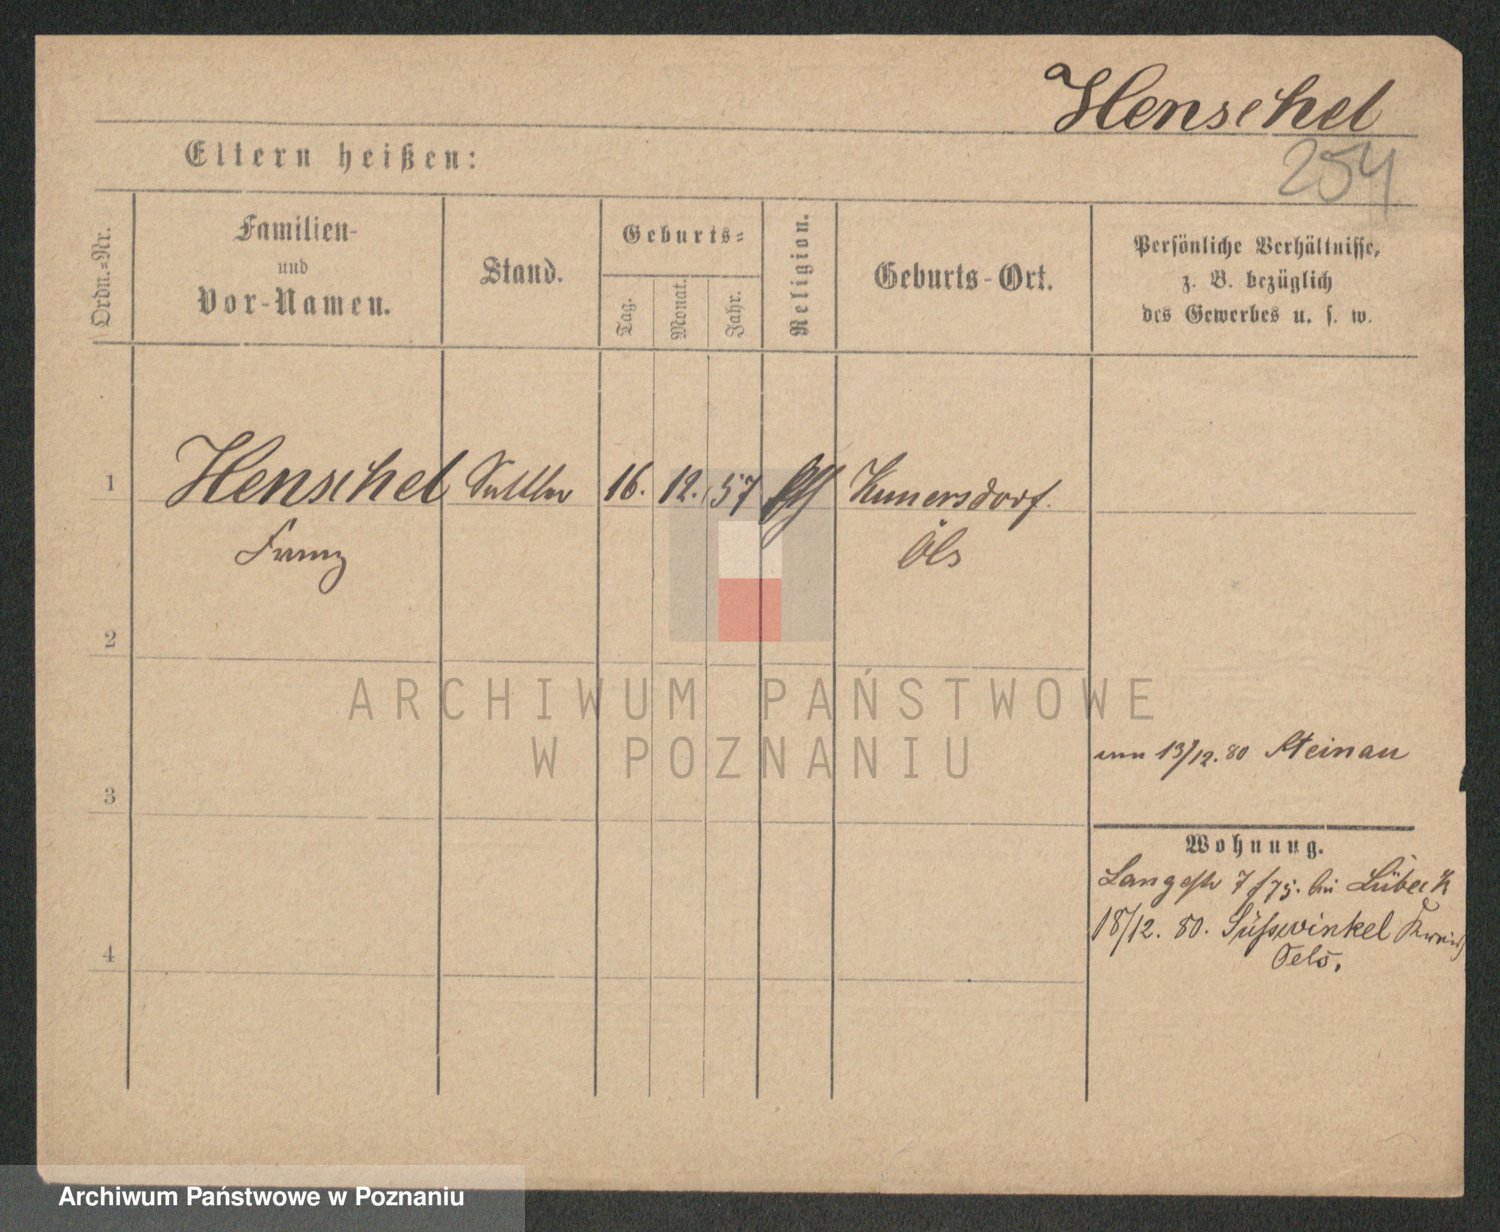 Henschel
254
Eltern heißen:
Ordn.-Nr.
Familien-
und
Vor-Namen.
Stand.
Geburts-
Tag.
Monat.
Jahr.
Religion.
Geburts-Ort.
Persönliche Verhältnisse,
z. B. bezüglich
des Gewerbes u. s. w.
1
Henschel Sattler 16. 12. 57 Kunersdorf.
Franz Öls
2
ARCHIWUM PAŃSTWOWE
W POZNANIU
13/12. 80 Steinau
3
Wohnung.
Langestr 7 bei Lübeck
18/12. 80. Süßwinkel Kreis
Oels.
4
Archiwum Państwowe w Poznaniu